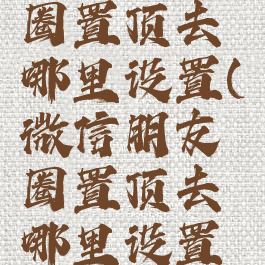 圈置顶去
哪里设置(
微信朋友
圈置顶去
哪里设置